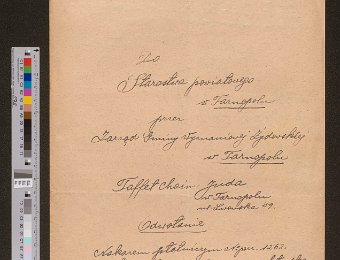 Do
Starostwa powiatowego
w Tarnopolu
przez
Zarząd Gminy Wyznaniowej Żydowskiej
w Tarnopolu
Taffet Chaim Juda
w Tarnopolu
ul. Lwowska 29.
Odwołanie
Nakazem płatniczym